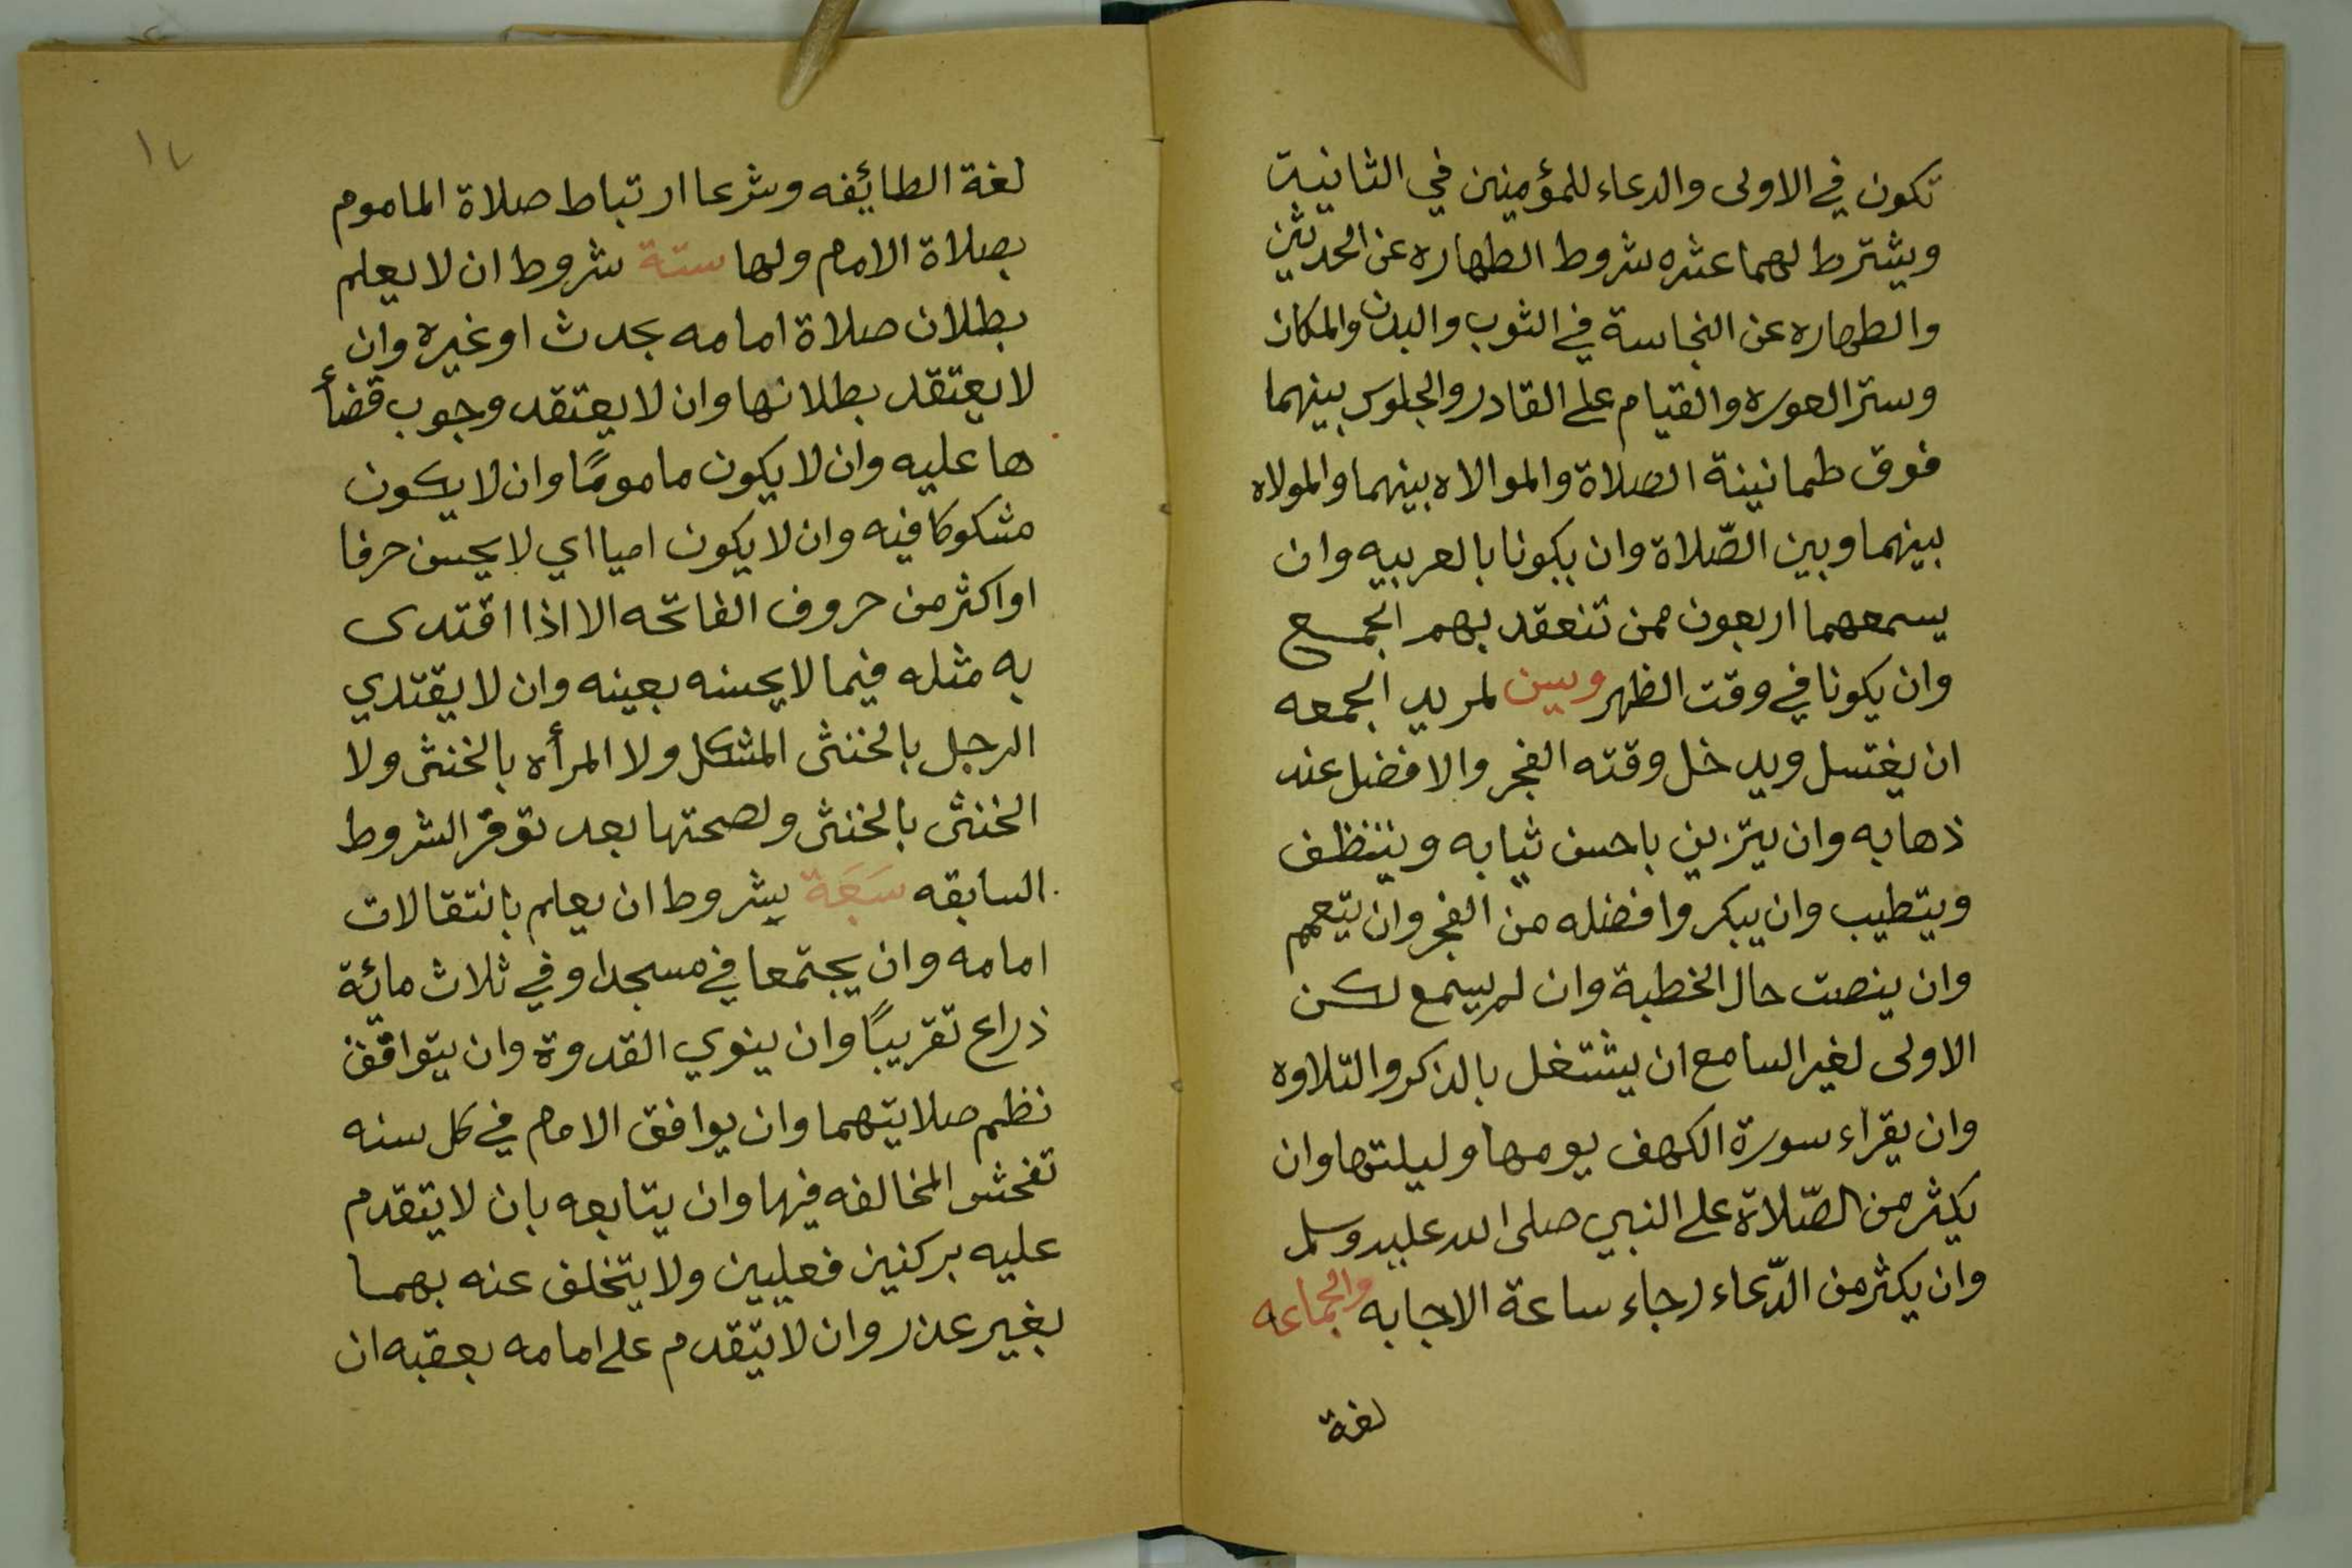 تكون في الاولى والدعاء للمؤمنين في الثانية
ويشترط لهما عشره شروط الطهاره عن الحدثين
والطهاره عن النجاسة في الثوب والبدن والمكان
وستر العوره والقيام على القادر والجلوس بينهما
فوق طمانينة الصلاة والموالاه بينهما والمولاه
بينهما وبين الصّلاة وان يكونا بالعربيه وان
يسمعهما اربعون ممن تنعقد بهم الجمع
وان يكونا في وقت الظهر ويسن لمريد الجمعه
ان يغتسل ويدخل وقته الفجر والافضل عند
ذهابه وان يتزين باحسن ثيابه ويتنظف
ويتطيب وان يبكر وافضله من الفجر وان يتعمم
وان ينصت حال الخطبة وان لم يسمع لكن
الاولى لغير السامع ان يشتغل بالذكر والتلاوه
وان يقراء سورة الكهف يومها وليلتها وان
يكثر من الصّلاة على النبي صلى الله عليه وسلم
وان يكثر من الدّعاء رجاء ساعة الاجابه والجماعه
لغة
١٧
لغة الطائفه وشرعا ارتباط صلاة الماموم
بصلاة الامام ولها ستة شروط ان لا يعلم
بطلان صلاة امامه بحدث او غيره وان
لا يعتقد بطلانها وان لا يعتقد وجوب قضأ
ها عليه وان لا يكون مامومًا وان لا يكون
مشكوكا فيه وان لا يكون اميا اي لا يحسن حرفا
او اكثر من حروف الفاتحه الا اذا اقتدى
به مثله فيما لا يحسنه بعينه وان لا يقتدي
الرجل بالخنثى المشكل ولا المرأه بالخنثى ولا
الخنثى بالخنثى ولصحتها بعد توفر الشروط
السابقه سَبَعَة شروط ان يعلم بانتقالات
امامه وان يجتمعا في مسجد او في ثلاث مائة
ذراع تقريبًا وان ينوي القدوة وان يتوافق
نظم صلايتهما وان يوافق الامام في كل سنه
تفحش المخالفه فيها وان يتابعه بان لا يتقدم
عليه بركنين فعليين ولا يتخلف عنه بهما
بغير عذر وان لا يتقدم على امامه بعقبه ان